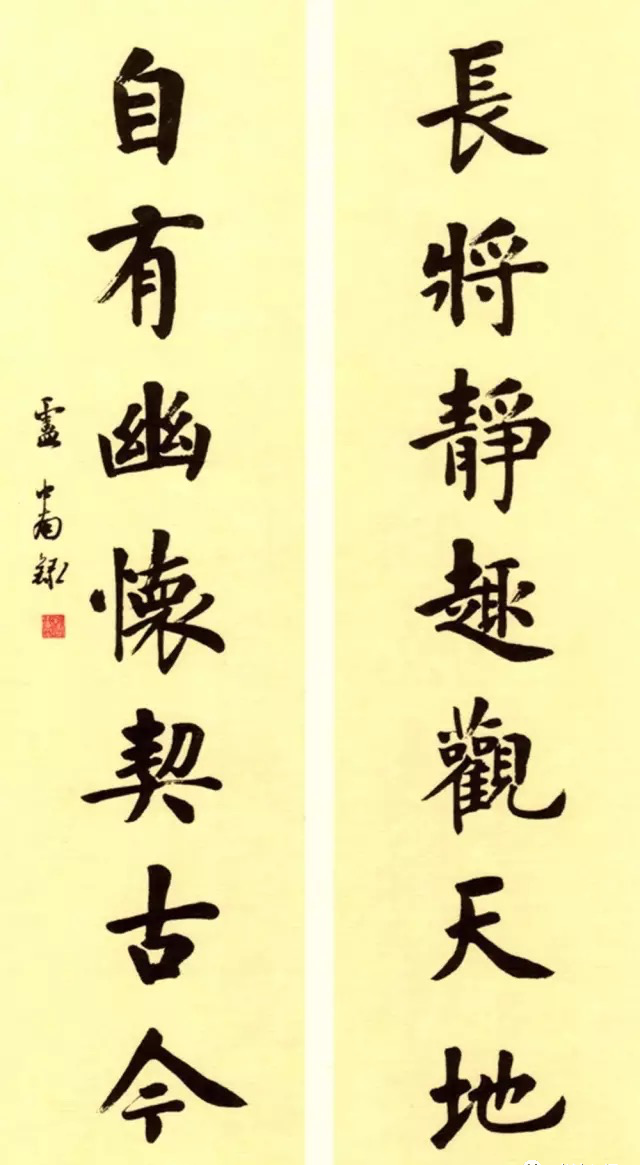 長將靜趣觀天地
自有幽懷契古今
盧中南錄